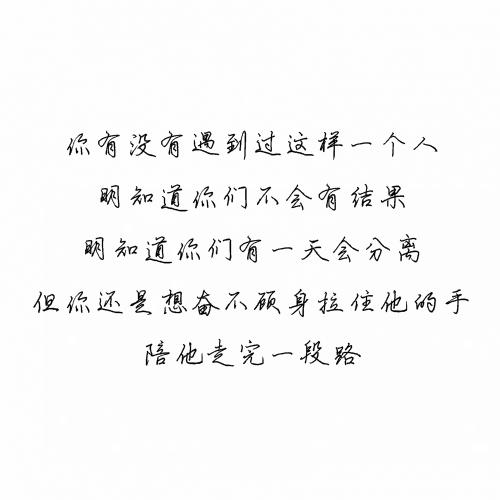 你有没有遇到过这样一个人
明知道你们不会有结果
明知道你们有一天会分离
但你还是想奋不顾身拉住他的手
陪他走完一段路